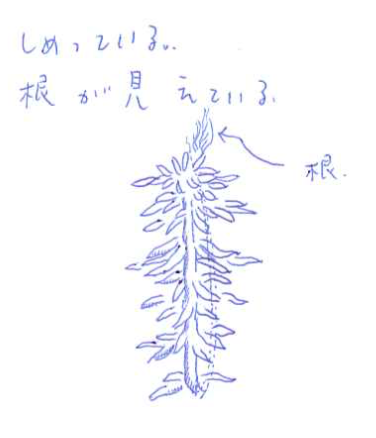 しめっている。
根が見えている.
根.